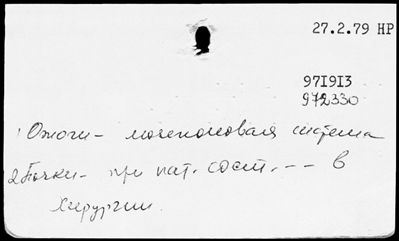 27.2.79 НР
971913
972330
1 Ожоги - мочеполовая система
2 Почки - при пат. сост. --- в
хирургии.